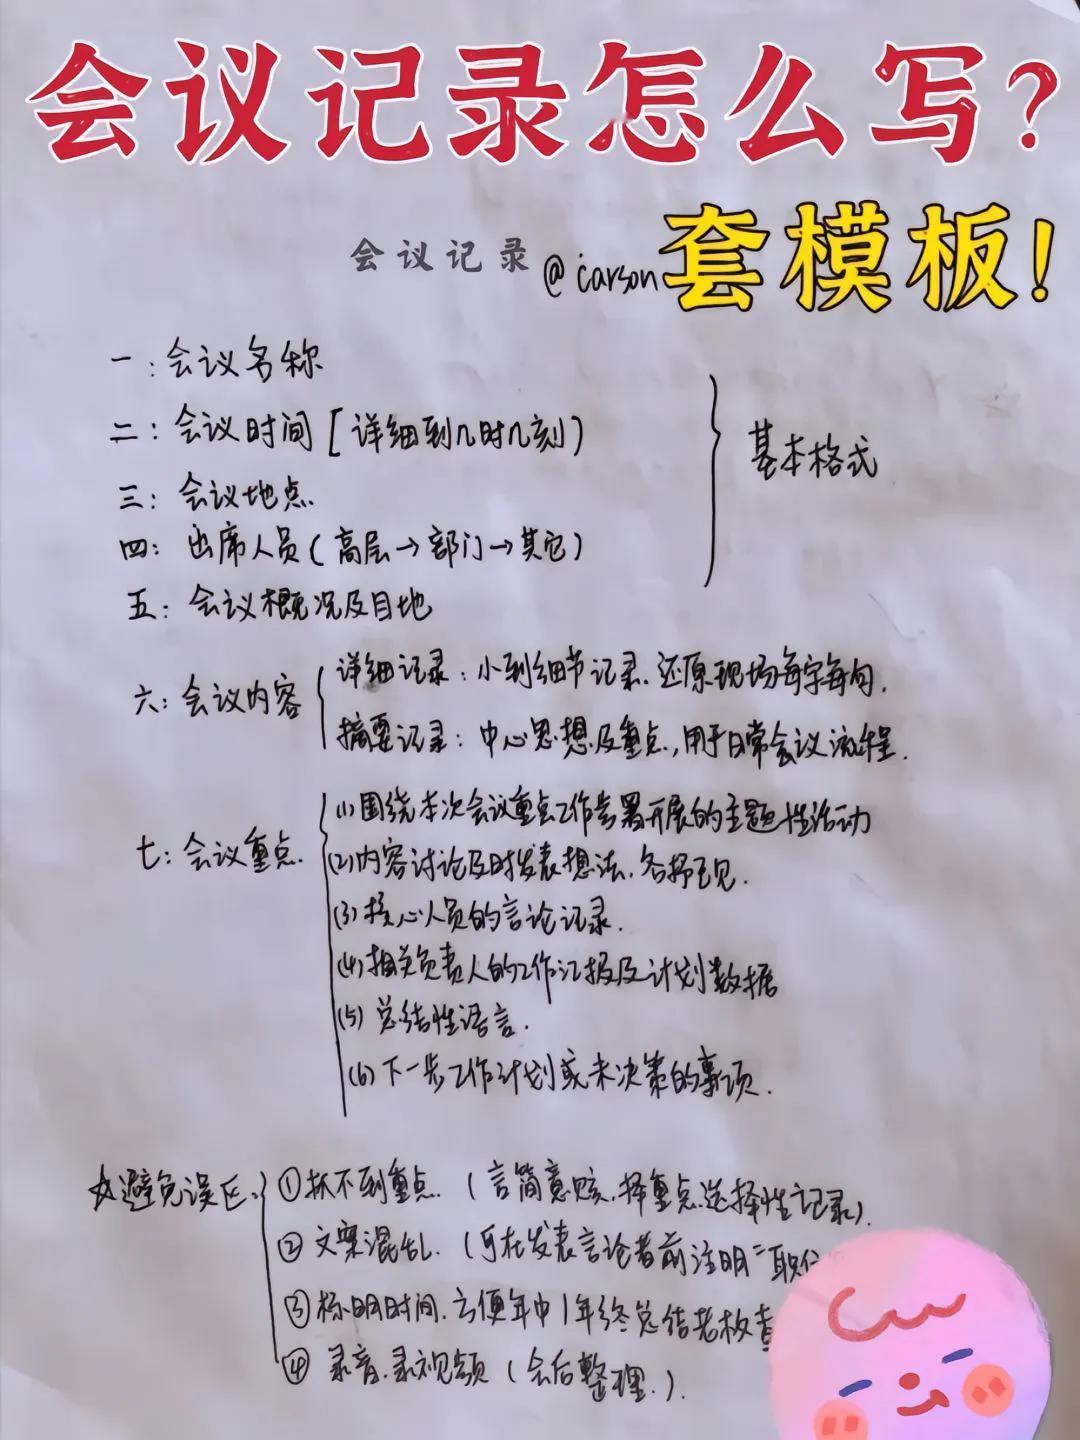 会议记录怎么写?
套模板!
会议记录 @carson
一:会议名称
二:会议时间[详细到几时几刻)
三:会议地点.
四:出席人员(高层→部门→其它)
基本格式
五:会议概况及目地
六:会议内容
详细记录:小到细节记录.还原现场每字每句.
摘要记录:中心思想及重点,用于日常会议流程.
七:会议重点.
(1)围绕本次会议重点工作部署开展的主题性活动
(2)内容讨论及时发表想法.各抒己见.
(3)核心人员的言论记录.
(4)相关负责人的工作汇报及计划数据
(5)总结性语言.
(6)下一步工作计划或未决策的事项.
☆避免误区.
①抓不到重点.(言简意赅.择重点.选择性记录).
②文案混乱.(可在发表言论者前注明"职位
③标明时间.方便年中/年终总结老板查
④录音.录视频(会后整理.).